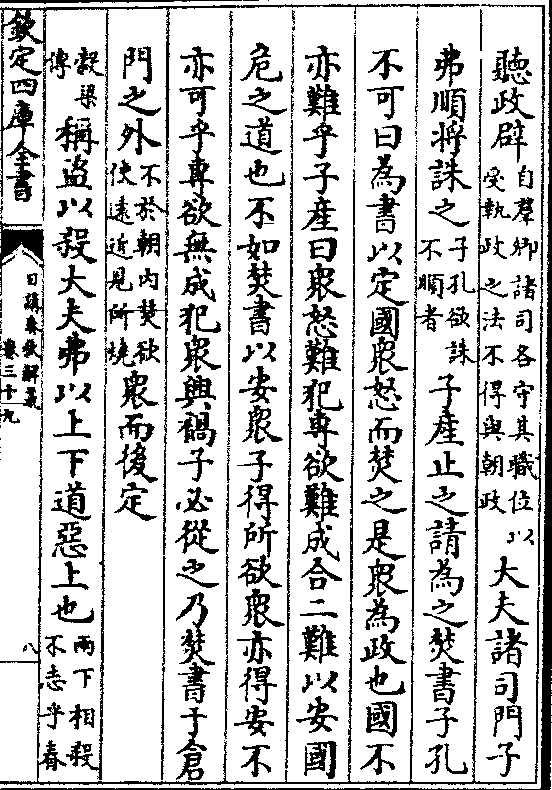 聽政辟自羣卿諸司各守其職位以受執政之法不得與朝政大夫諸司門子
弗順將誅之子孔欲誅不順者子產止之請為之焚書子孔
不可曰為書以定國衆怒而焚之是衆為政也國不
亦難乎子產曰衆怒難犯專欲難成合二難以安國
危之道也不如焚書以安衆子得所欲衆亦得安不
亦可乎專欲無成犯衆興禍子必從之乃焚書于倉
門之外不於朝內焚欲使遠近見所燒衆而後定
穀梁傳稱盜以殺大夫弗以上下道惡上也兩下相殺不志乎春
欽定四庫全書
日講春秋解義
卷三十九
八